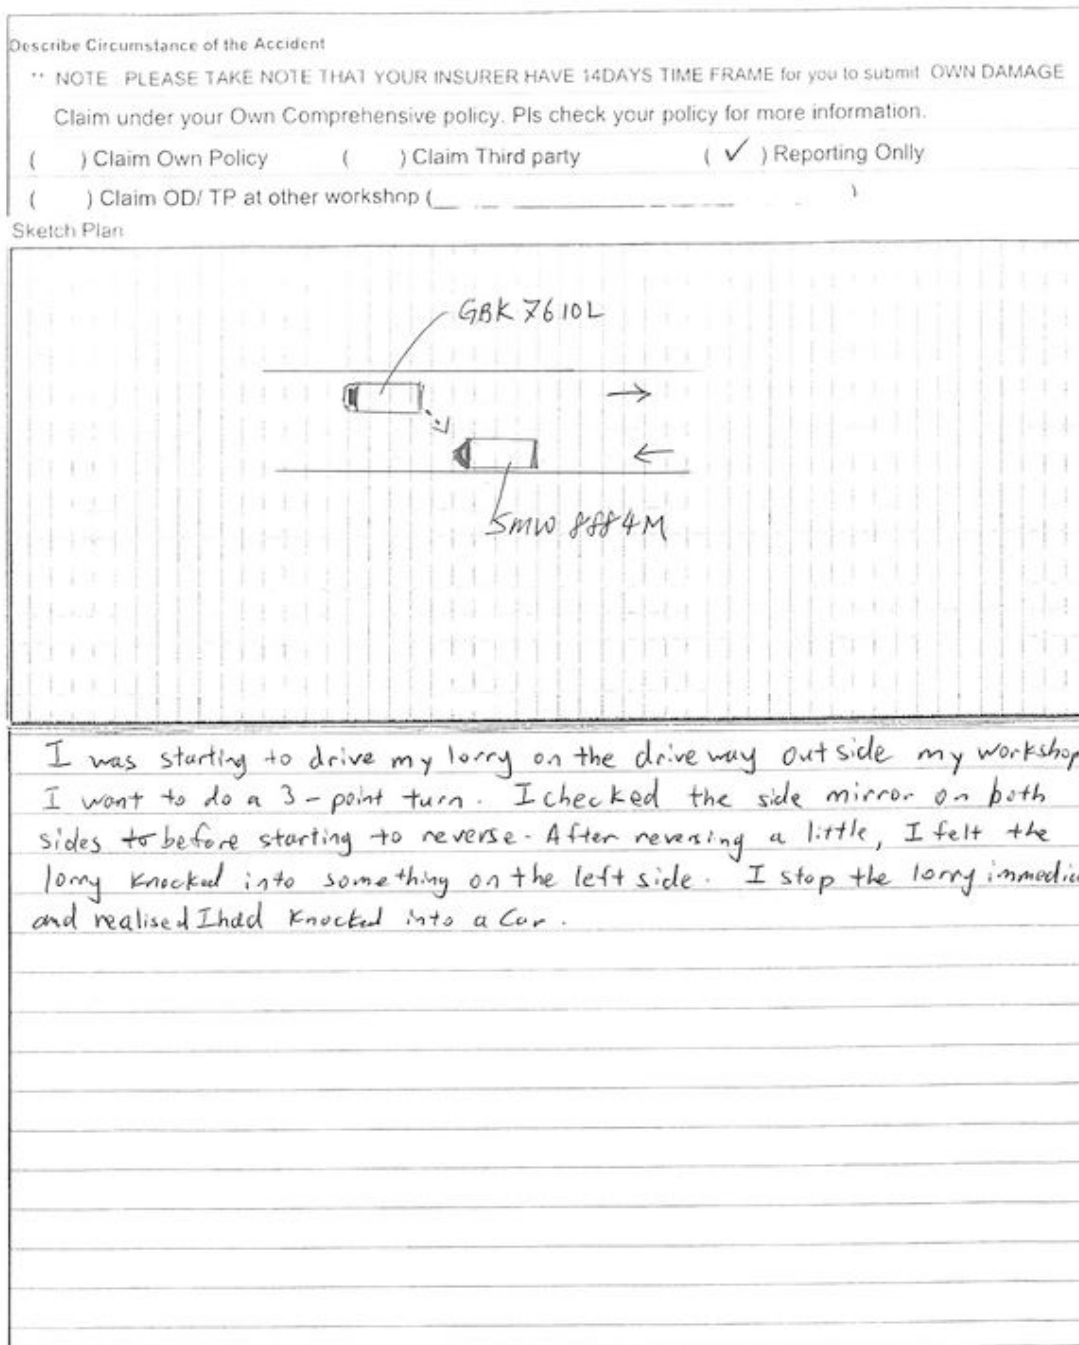 Describe Circumstance of the Accident
** NOTE PLEASE TAKE NOTE THAT YOUR INSURER HAVE 14DAYS TIME FRAME for you to submit OWN DAMAGE
Claim under your Own Comprehensive policy. Pls check your policy for more information.
( ) Claim Own Policy ( ) Claim Third party ( ✓ ) Reporting Onlly
( ) Claim OD/ TP at other workshop ( )
Sketch Plan
GBK 7610L
SMW 8884M
I was starting to drive my lorry on the drive way outside my workshop
I want to do a 3-point turn. I checked the side mirror on both
sides to before starting to reverse. After reversing a little, I felt the
lorry knocked into something on the left side. I stop the lorry immedia
and realised I had knocked into a Car.